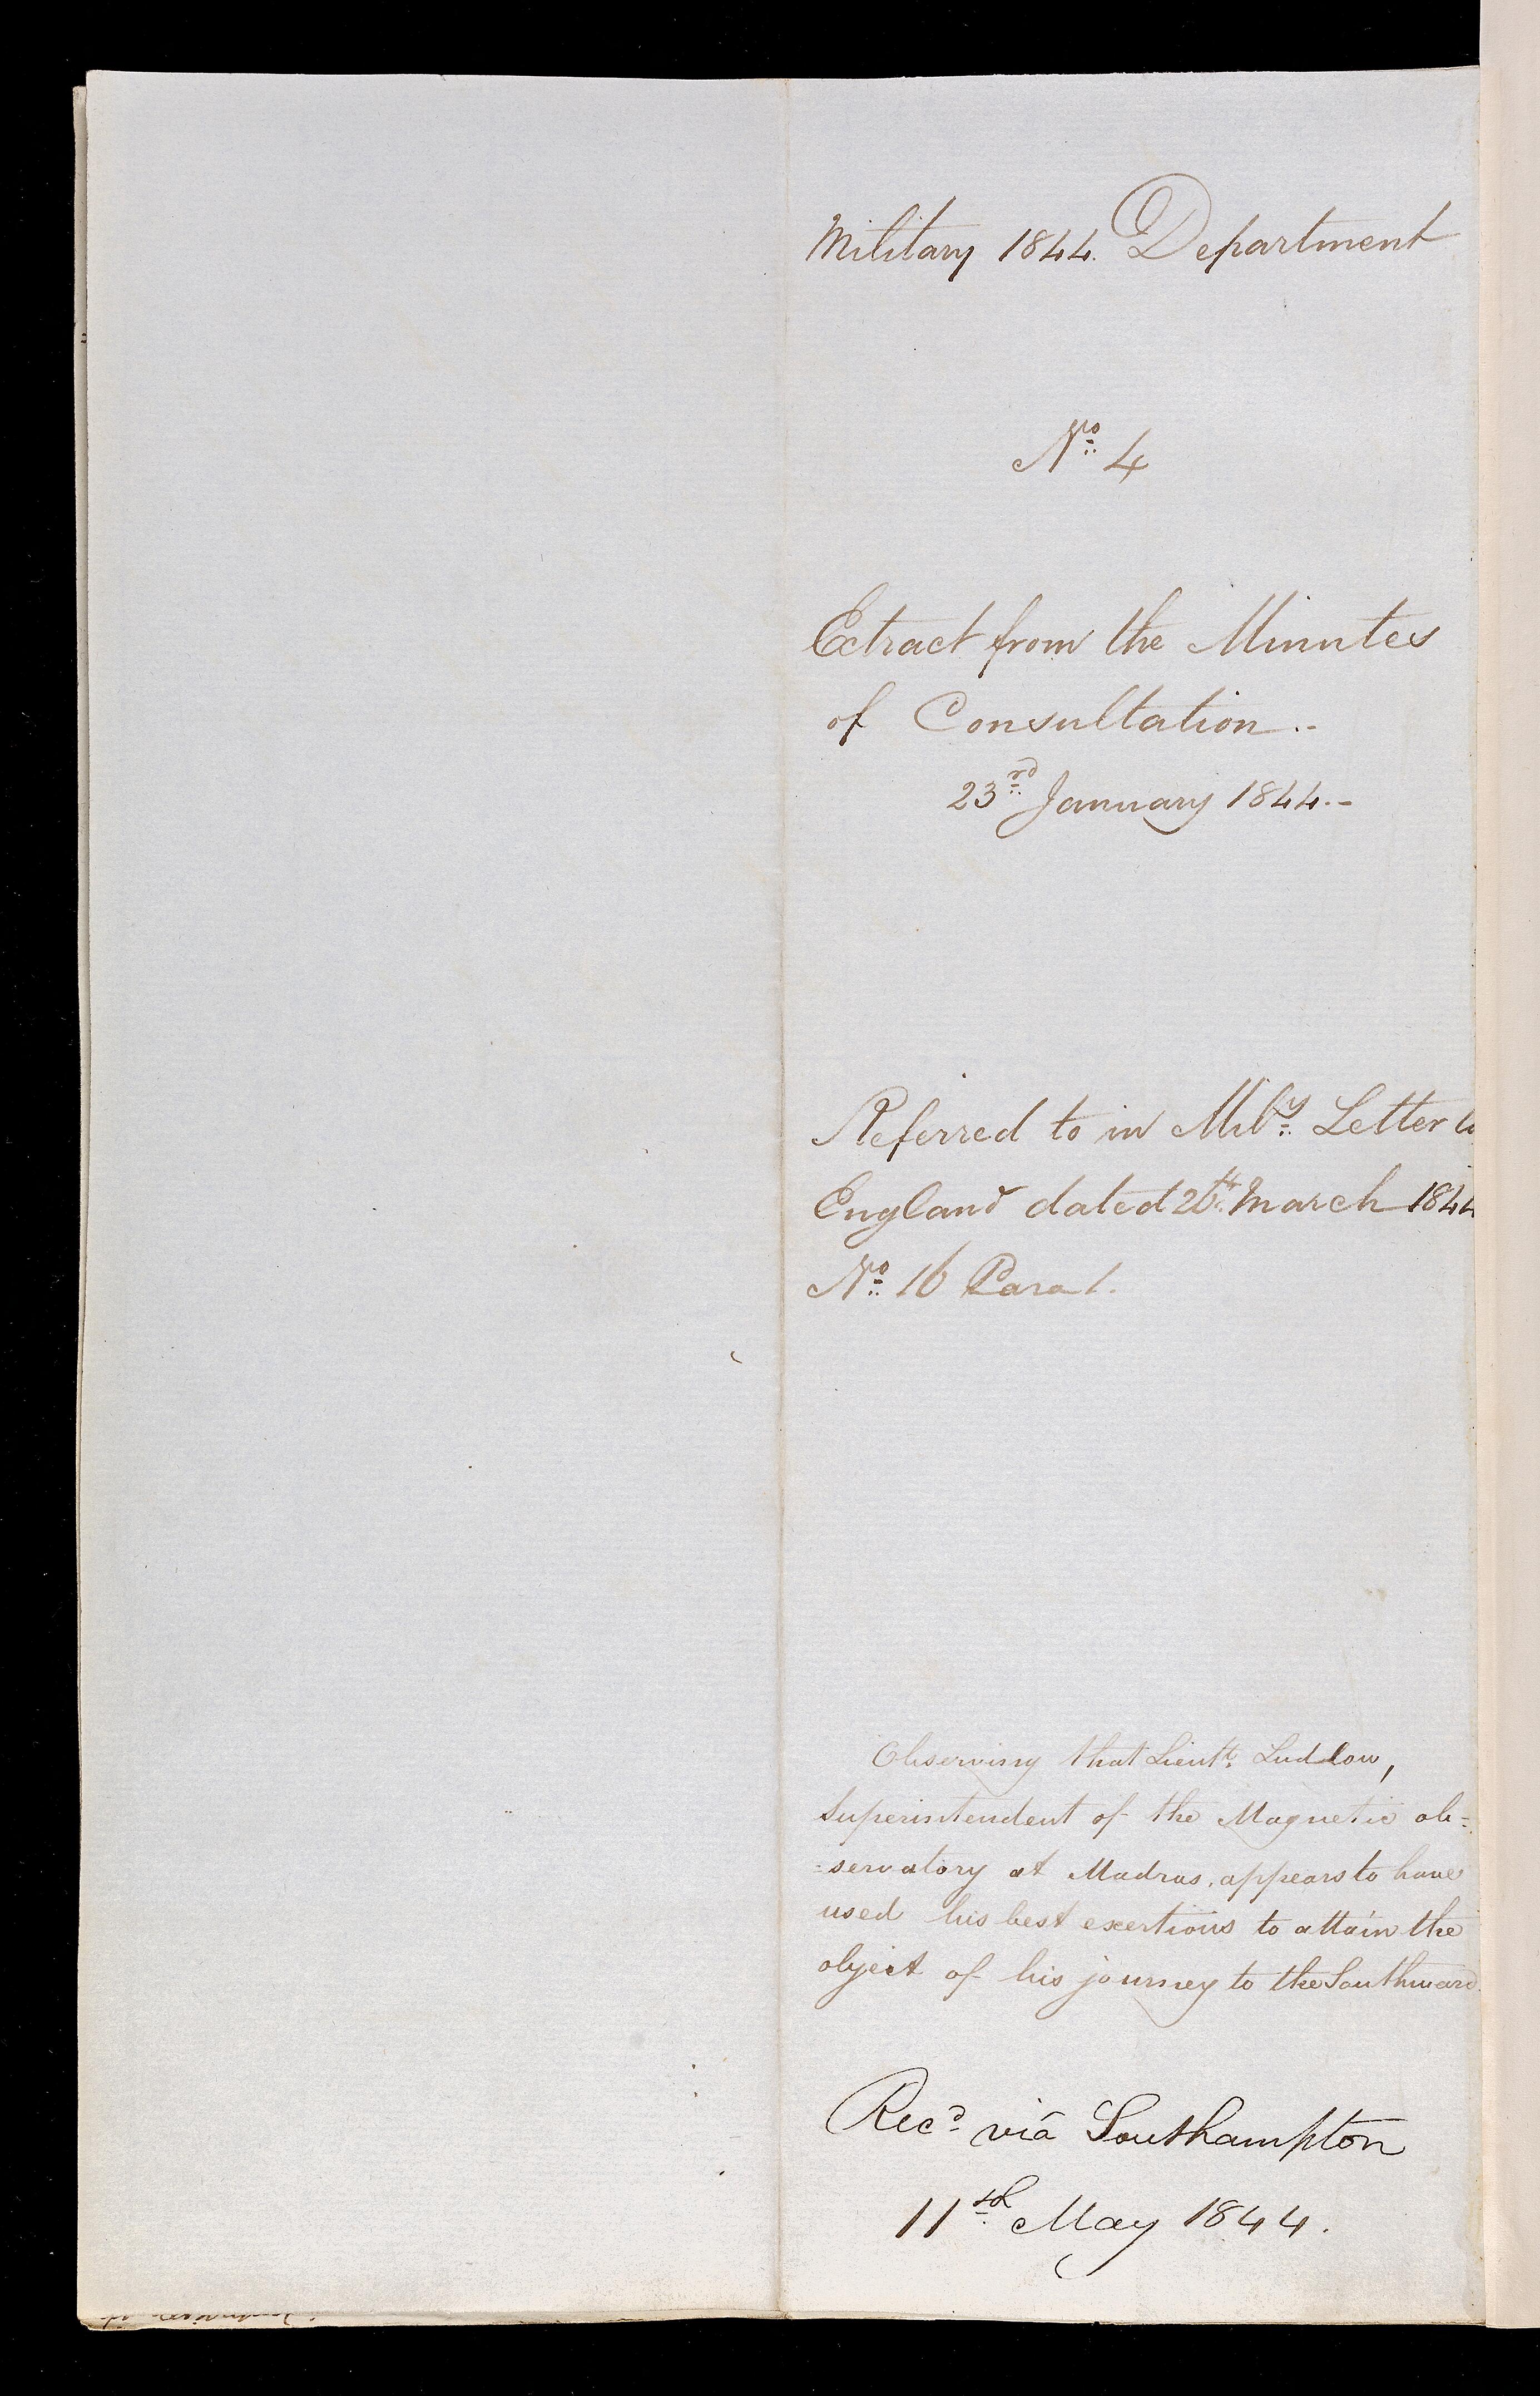 Military 1844. Department
No. 4
Extract from the Minutes
of Consultation.-
23rd January 1844.-
Referred to in Mily. Letter to
England dated 26th March 1844
No. 16 Para 1.
Observing that Lieutt. Ludlow,
Superintendent of the Magnetic ob=
=servatory at Madras, appears to have
used his best exertions to attain the
object of his journey to the Southward.
Recd. viâ Southampton
11th May 1844.